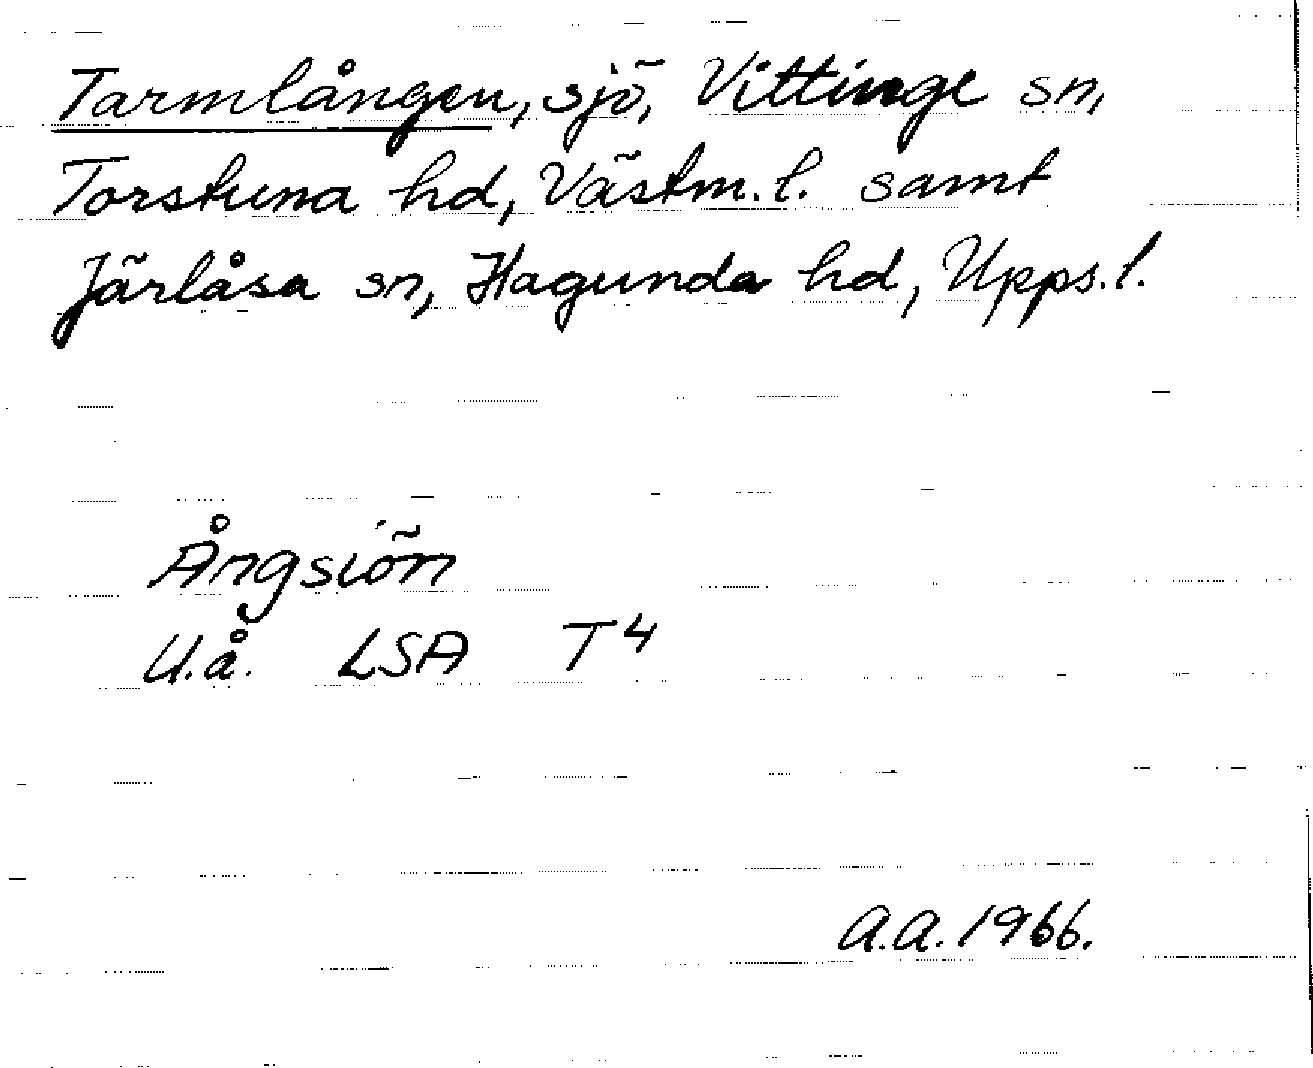 Tarmlången, sjö, Vittinge sn,
Torstuna hd, Västm. l. samt
Järlåsa sn, Hagunda hd, Upps. l.
Ångsiön
U.å. LSA T4
A.A. 1966.